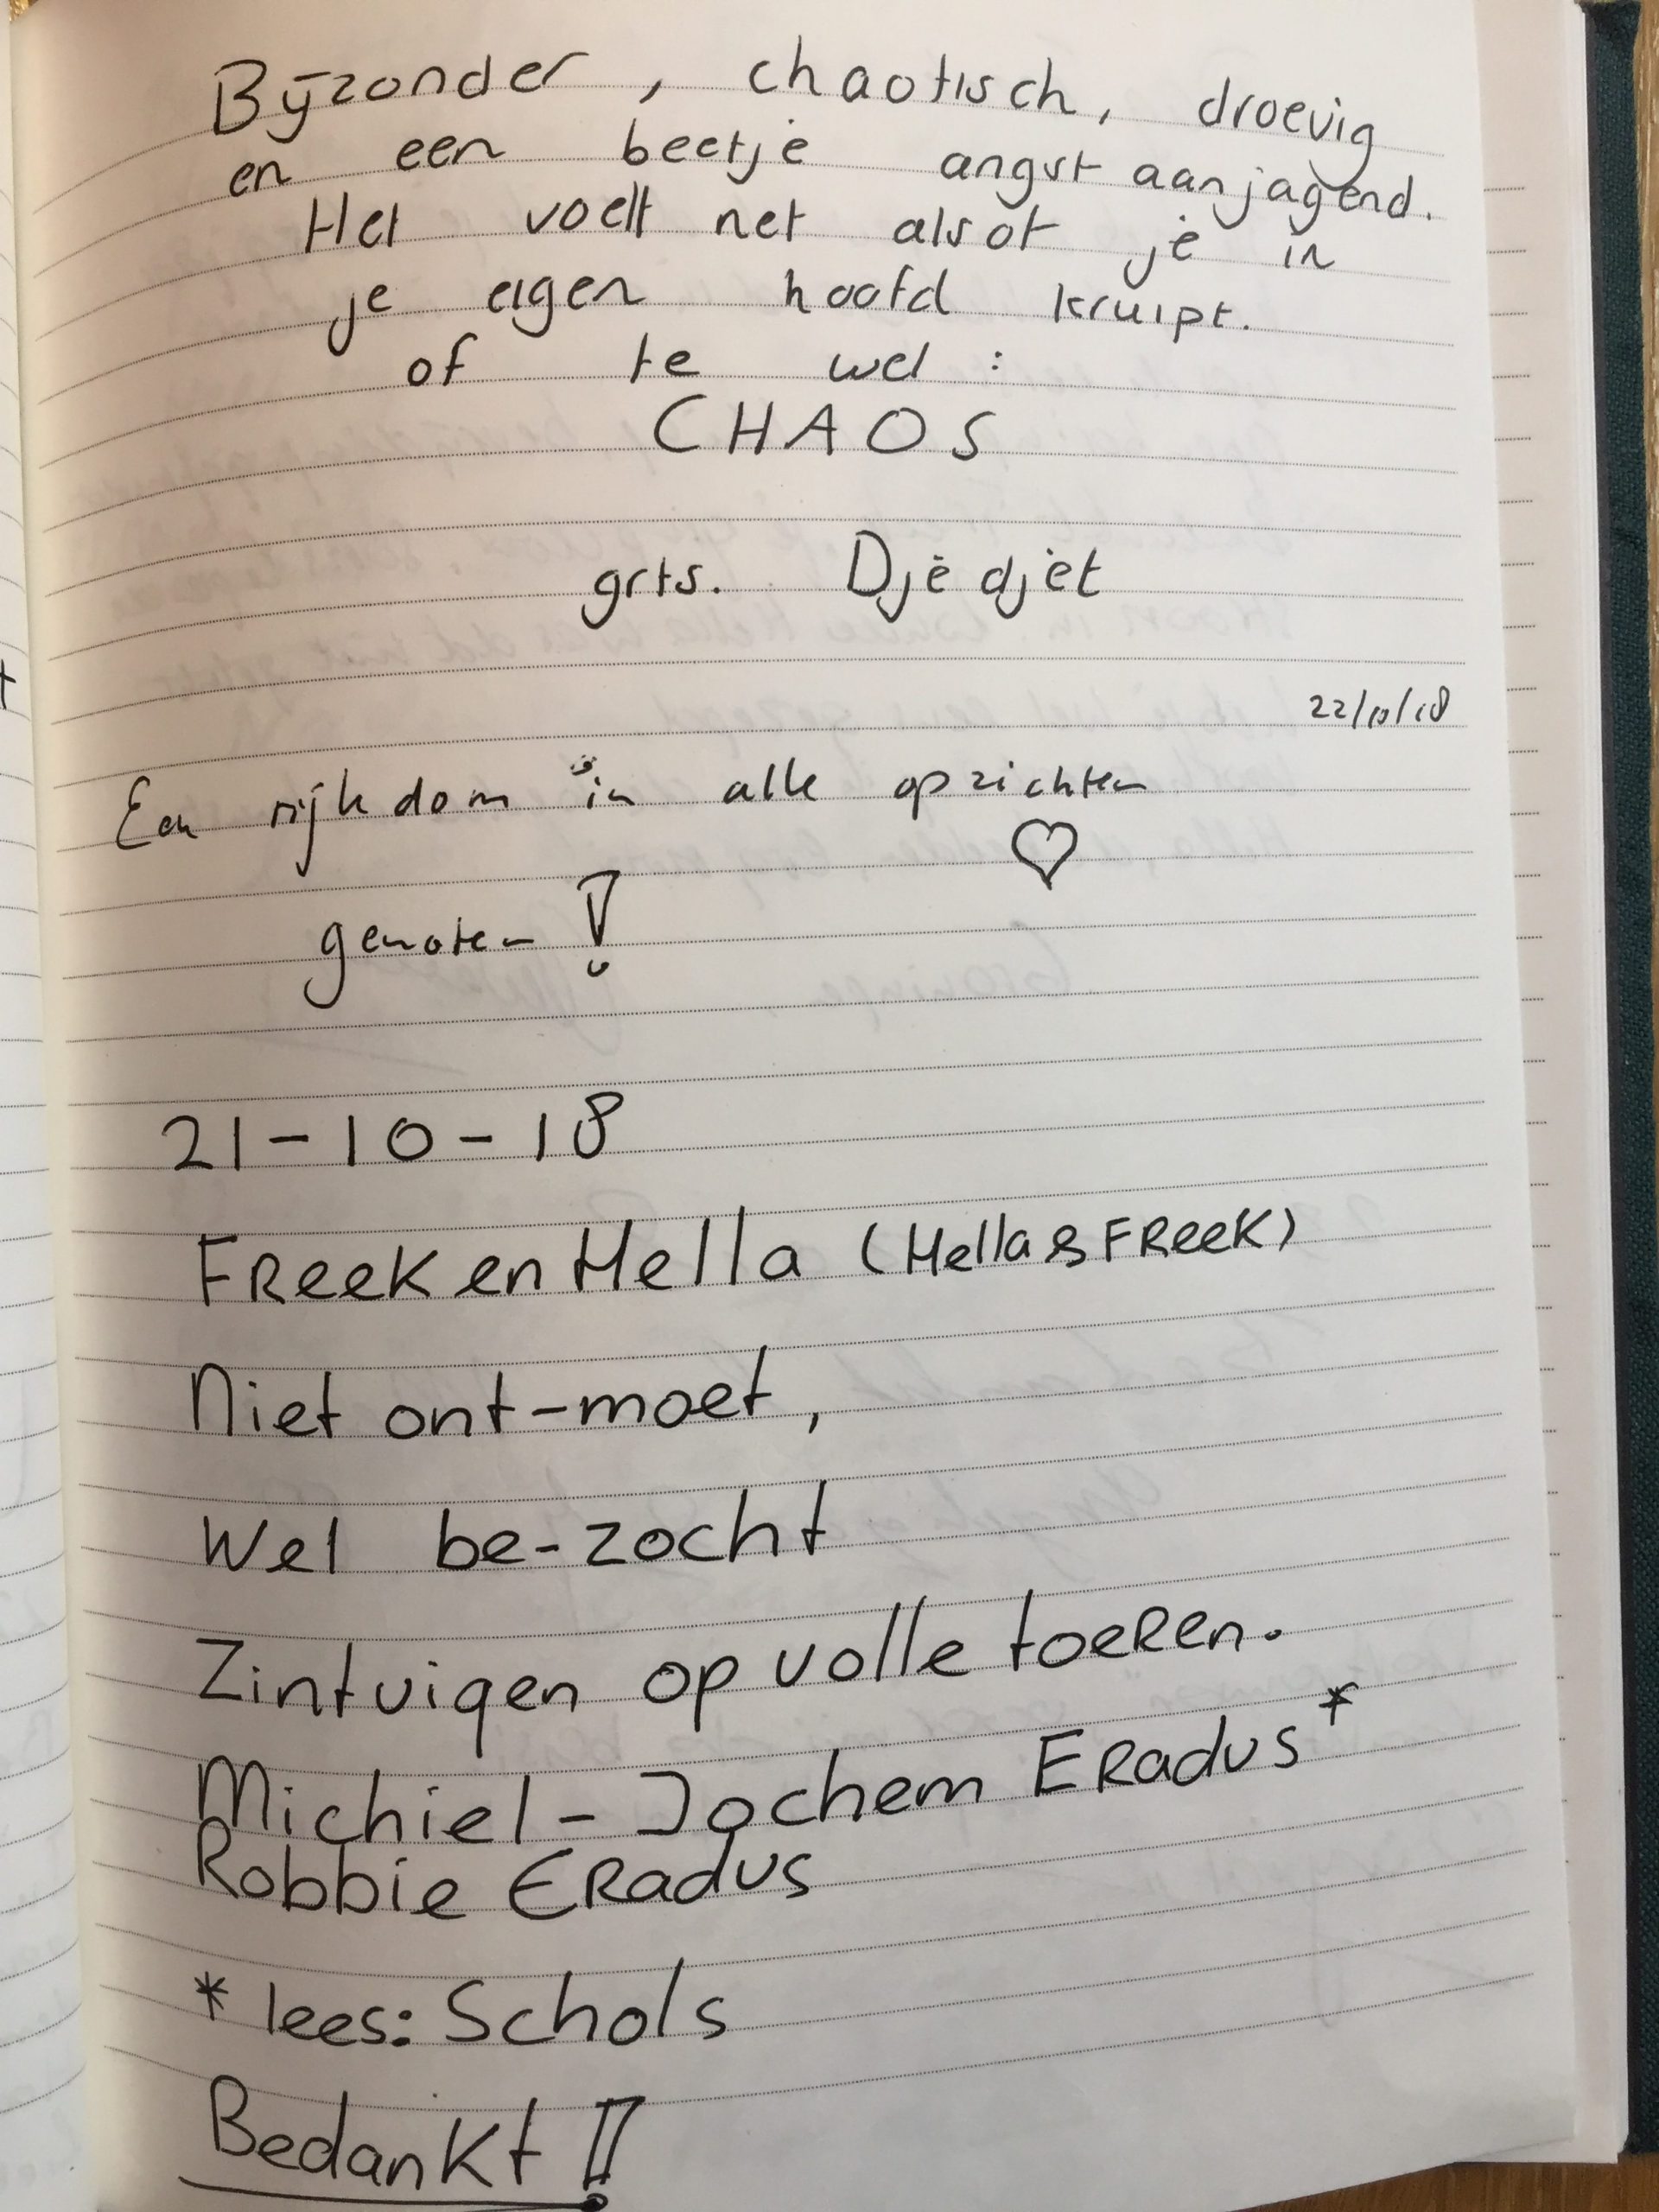 Bijzonder, chaotisch, droevig
en een beetje angst aanjagend.
Het voelt net alsof je in
je eigen hoofd kruipt.
of te wel :
CHAOS
grts. Djedjet
22/10/18
Een rijkdom in alle opzichten
♡
genoten !
21-10-18
FReek en Hella (Hella & FReek)
Niet ont-moet,
Wel be-zocht
Zintuigen op volle toeRen.
Michiel-Jochem ERadus*
Robbie ERadus
* lees: Schols
Bedankt !!